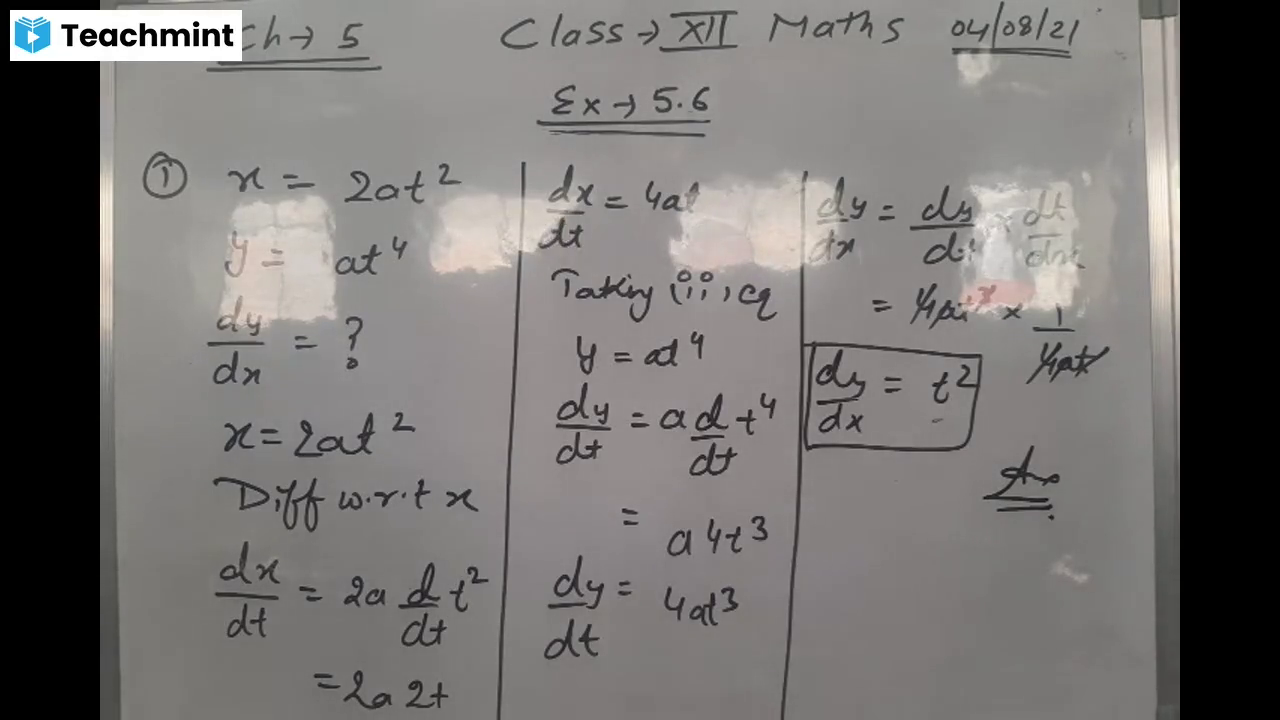 Teachmint
Ch → 5
Class → XII Maths
04/08/21
Ex → 5.6
① x = 2at²
y = at⁴
dy/dx = ?
x = 2at²
Diff w.r.t x
dx/dt = 2a d/dt t²
= 2a 2t
dx/dt = 4at
Taking (ii) eq
y = at⁴
dy/dt = a d/dt t⁴
= a4t³
dy/dt = 4at³
dy/dx = dy/dt × dt/dx
= 4at³ × 1/4at
dy/dx = t²
Ans.